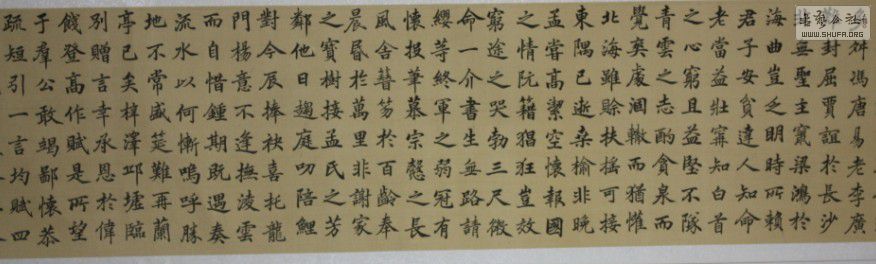 多舛馮唐易老李廣
難封屈賈誼於長沙
非無聖主竄梁鴻於
海曲豈乏明時所賴
君子安貧達人知命
老當益壯寧知白首
之心窮且益堅不隊
青雲之志酌貪泉而
覺爽處涸轍而猶懽
北海雖賒扶搖可接
東隅已逝桑榆非晚
孟嘗高潔空懷報國
之情阮籍猖狂豈效
窮途之哭勃三尺微
命一介書生無路請
纓等終軍之弱冠有
懷投筆慕宗愨之長
風舍簪笏於百齡奉
晨昬於萬里非謝家
之寶樹接孟氏之芳
鄰他日趨庭叨陪鯉
對今辰捧袂喜托龍
門楊意不逢撫淩雲
而自惜鍾期既遇奏
流水以何慚嗚呼勝
地不常盛筵難再蘭
亭已矣梓澤邱墟臨
別贈言幸承恩於偉
餞登高作賦是所望
于羣公敢竭鄙懷恭
疏短引一言均賦四
書法公社
WWW.SHUFA.ORG